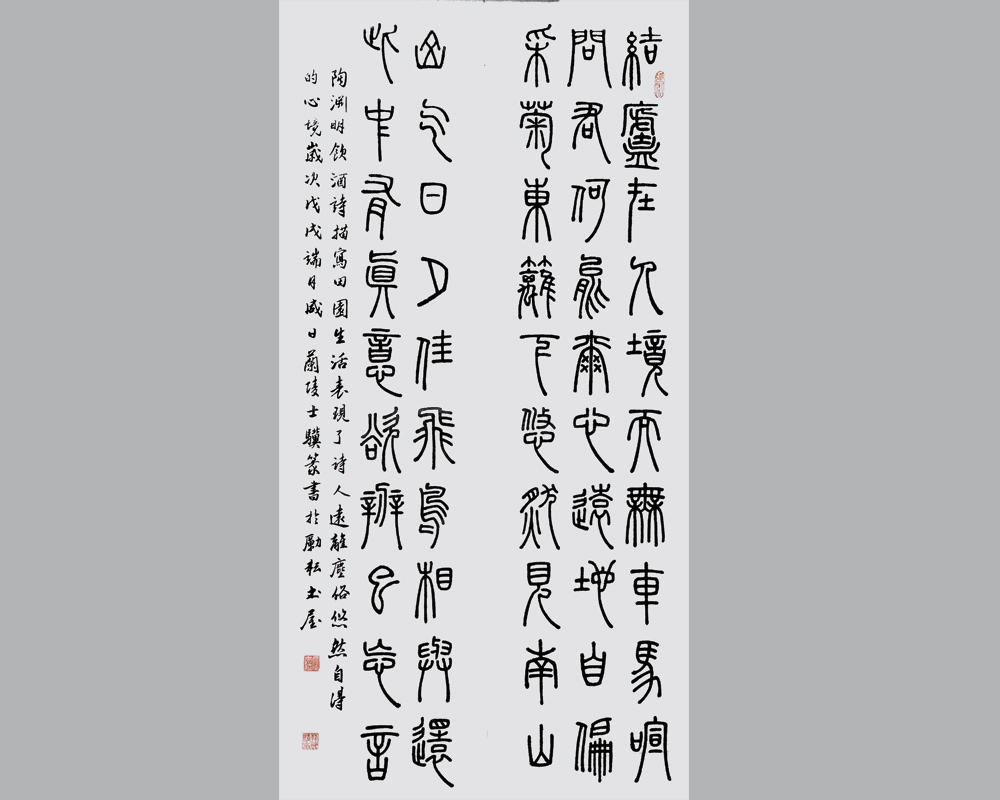 結廬在人境而無車馬喧
問君何能爾心遠地自偏
采菊東籬下悠然見南山
山气日夕佳飛鳥相與還
此中有真意欲辨已忘言
陶淵明飲酒詩描寫田園生活表現了詩人遠離塵俗悠然自得
的心境歲次戊戌端月盛日蘭陵士驥篆書於勵耘書屋